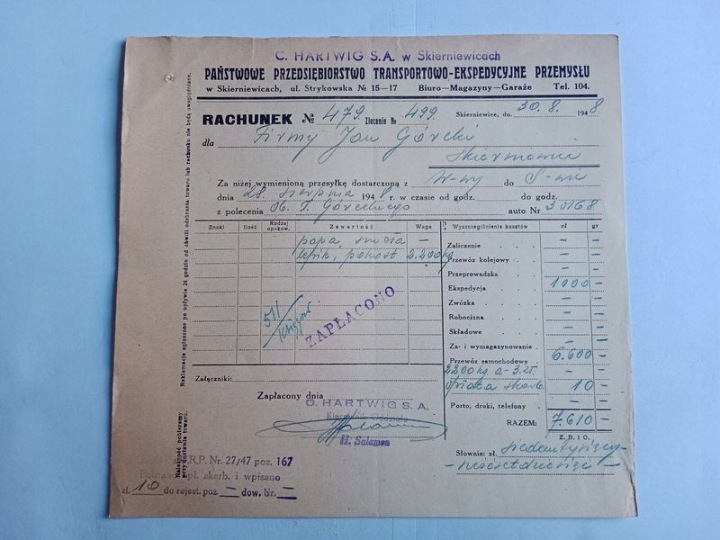 C. HARTWIG S.A. w Skierniewicach
PAŃSTWOWE PRZEDSIĘBIORSTWO TRANSPORTOWO-EKSPEDYCYJNE PRZEMYSŁU
w Skierniewicach, ul. Strykowska № 15—17 Biuro—Magazyny—Garaże Tel. 104.
RACHUNEK № 479 Zlecenie № 499. Skierniewice, dn. 30. 8. 1948.
dla Firmy Jan Górecki
Skierniewice
Za niżej wymienioną przesyłkę dostarczoną z W-wy do S-wic
dnia 28 sierpnia 1948 r. w czasie od godz. do godz.
z polecenia Ob. J. Góreckiego auto Nr 30168
Znaki Ilość Rodzaj opakow. Zawartość Waga Wyszczególnienie kosztów zł gr
papa, smoła —
lepik, pokost 2.200 kg
Zaliczenie — —
Przewóz kolejowy — —
Przeprowadzka — —
Ekspedycja 1000 —
Zwózka — —
Robocizna — —
Składowe — —
Za- i wymagazynowanie — —
Przewóz samochodowy 6.600 —
2200 kg a 3 zł.
opłata skarb. 10 —
Porto, druki, telefony — —
RAZEM: 7.610 —
511/
ZAPŁACONO
Załączniki:
Zapłacony dnia
C. HARTWIG S.A.
Kierownik Oddziału
H. Salomon
Z. B. i O.
Słownie: zł. siedemtysięcy-
sześćsetdziesięć —
R.P. Nr. 27/47 poz. 167
opł. skarb. i wpisano
zł 10 do rejest. poz — dow. Nr. —
Reklamacje zgłoszone po upływie 24 godzin od chwili odebrania towaru lub rachunku nie będą uwzględniane.
Należność pobieramy przy dostawie towaru.